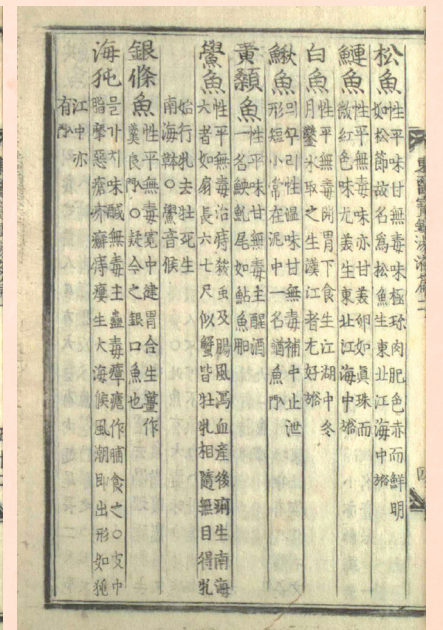 松魚 性平味甘無毒味極珎肉肥色赤而鮮明
如松節故名爲松魚生東北江海中俗
鰱魚 性平無毒味亦甘美卵如眞珠而
微紅色味尤美生東北江海中俗
白魚 性平無毒開胃下食生江湖中冬
月鑿氷取之生漢江者尤好俗
鰍魚 믜꾸리性溫味甘無毒補中止泄
形短小常在泥中一名鰌魚入門
黃顙魚 性平味甘無毒主醒酒
一名 尾如鮎魚
鱟魚 性平無毒治痔殺虫及腸風瀉血產後痢生南海
大者如扇長六七尺似蟹皆牡牝相隨無目得牝
始行牝去牡死生
南海 ○鱟音候
銀條魚 性平無毒寬中健胃合生薑作
羹良入門○疑今之銀口魚也
海㹠 믈가치味醎無毒主蟲毒瘴瘧作脯食之○皮中
脂摩惡瘡疥癬痔瘻生大海候風潮即出形如㹠
江中亦
有